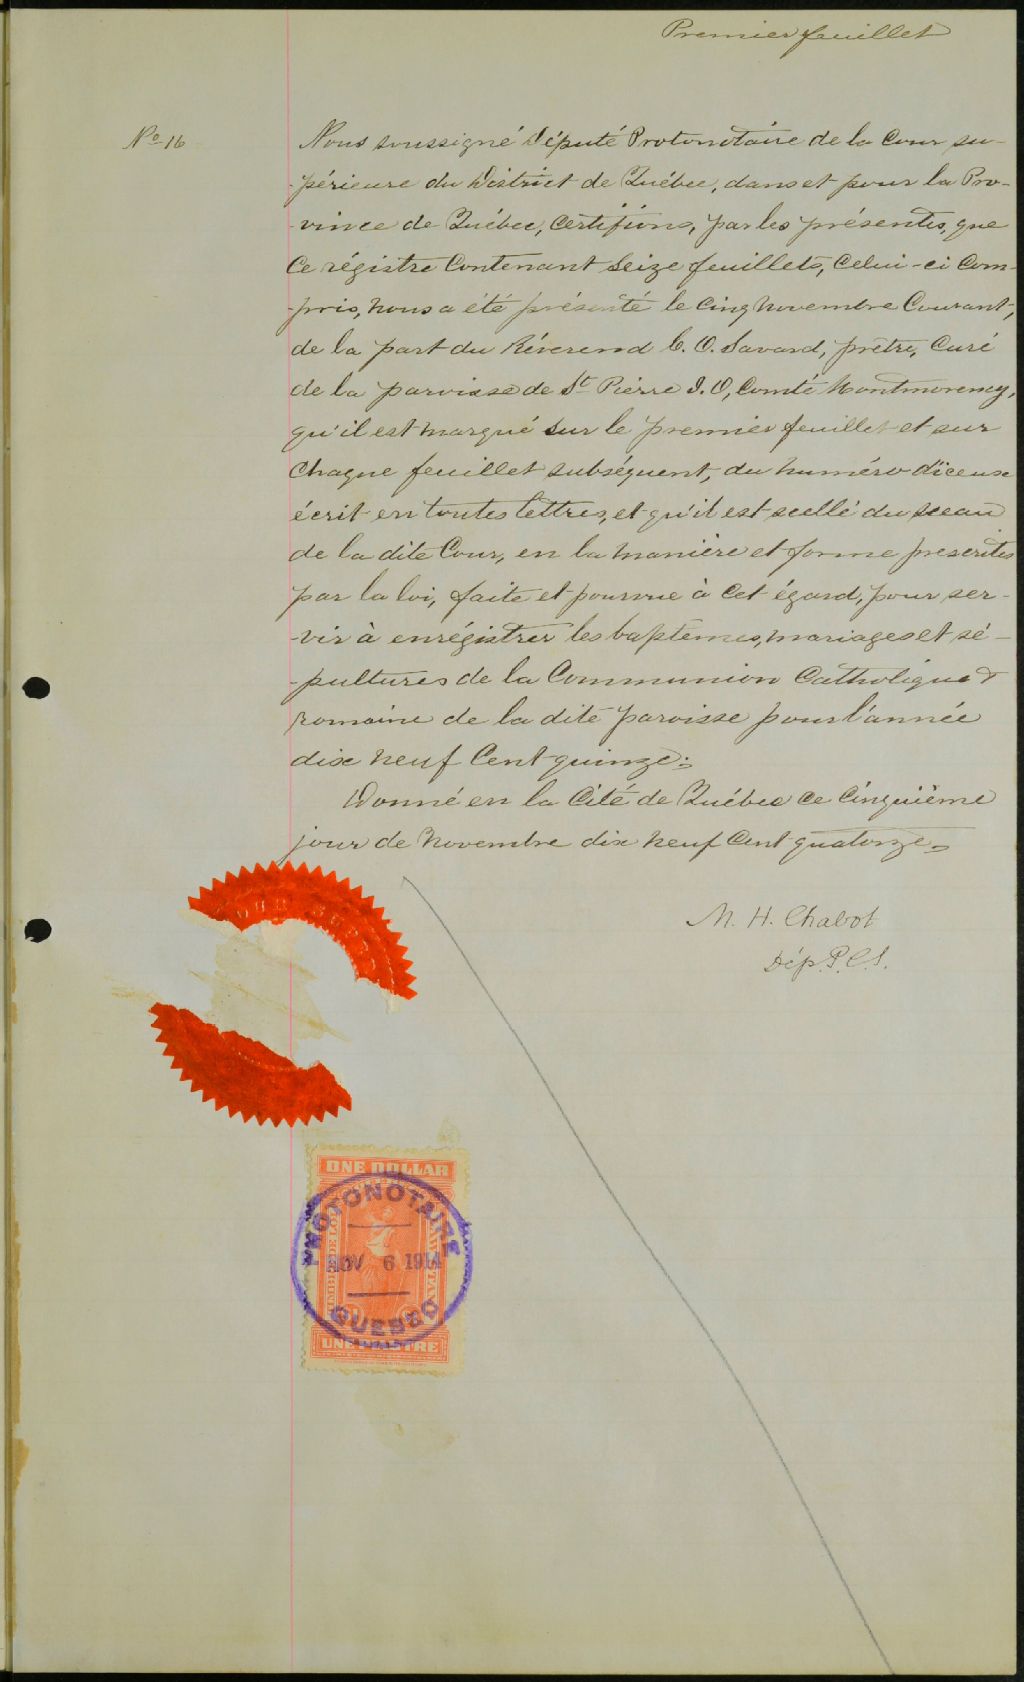 Premier feuillet
No 16
Nous soussigné Député Protonotaire de la Cour su-
-périeure du District de Québec, dans et pour la Pro-
-vince de Québec, Certifions, par les présentes, que
Ce régistre Contenant Seize feuillets, Celui-ci Com-
-pris, nous a été présenté le Cinq Novembre Courant,
de la part du Révérend C. O. Savard, prêtre, Curé
de la paroisse de St Pierre I. O, Comté Montmorency,
qu'il est marqué sur le premier feuillet et sur
Chaque feuillet subséquent, du numéro d'iceux
écrit en toutes lettres, et qu'il est scellé du sceau
de la dite Cour, en la manière et forme prescrites
par la loi, faite et pourvue à Cet égard, pour ser-
-vir à enrégistrer les baptêmes, mariages et sé-
-pultures de la Communion Catholique &
romaine de la dite paroisse pour l'année
dix neuf Cent quinze.
Donné en la Cité de Québec ce Cinquième
jour de Novembre dix neuf Cent quatorze.
M. H. Chabot
Dép. P. C. S.
ONE DOLLAR
PROTONOTAIRE
NOV 6 1914
QUEBEC
UNE PIASTRE